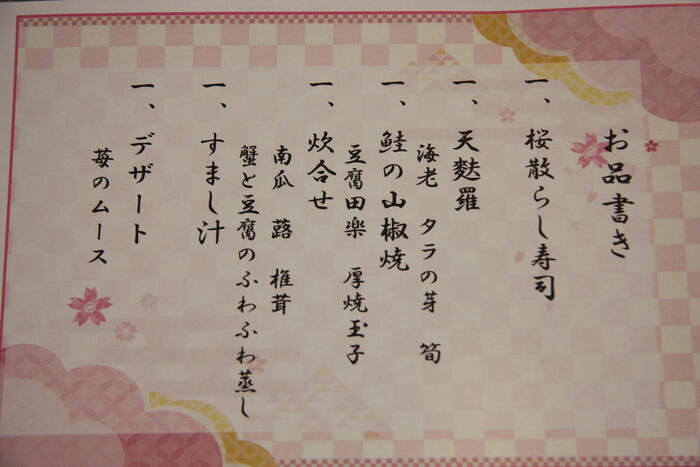 お品書き
一、桜散らし寿司
一、天麩羅
海老 タラの芽 筍
一、鮭の山椒焼
豆腐田楽 厚焼玉子
一、炊合せ
南瓜 蕗 椎茸
蟹と豆腐のふわふわ蒸し
一、すまし汁
一、デザート
苺のムース